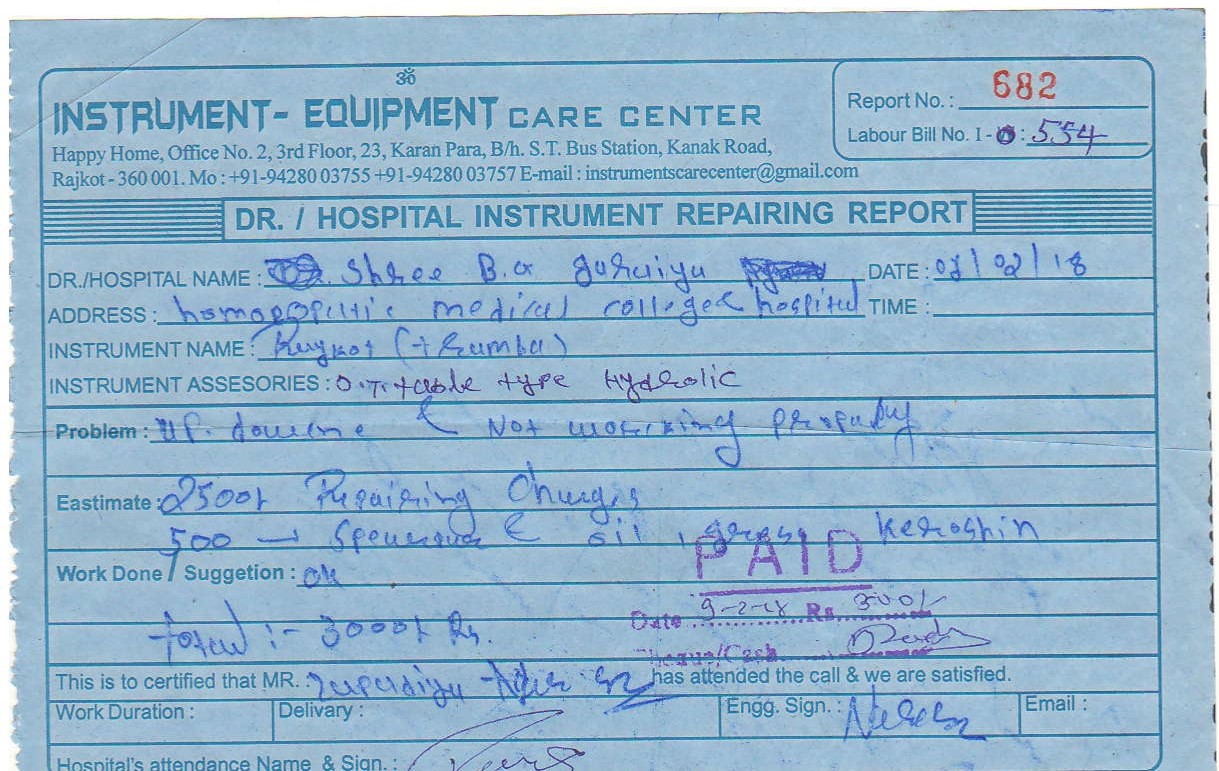 ॐ
INSTRUMENT- EQUIPMENT CARE CENTER
Happy Home, Office No. 2, 3rd Floor, 23, Karan Para, B/h. S.T. Bus Station, Kanak Road,
Rajkot - 360 001. Mo : +91-94280 03755 +91-94280 03757 E-mail : instrumentscarecenter@gmail.com
Report No. : 682
Labour Bill No. I - : 554
DR. / HOSPITAL INSTRUMENT REPAIRING REPORT
DR./HOSPITAL NAME : Shree B.G DATE : /02/18
ADDRESS : medical college & hospital TIME :
INSTRUMENT NAME :
INSTRUMENT ASSESORIES : O.T. table type Hydrolic
Problem : UP. & Not working
Eastimate : 2500/- Repairing Charges
500 → & oil , Keroshin
Work Done / Suggetion : OK
PAID
Total :- 3000/- Rs.
Date 9-2-18 Rs. 300/-
Cheque/Cash
This is to certified that MR. : has attended the call & we are satisfied.
Work Duration : Delivary : Engg. Sign. : Email :
Hospital's attendance Name & Sign. :